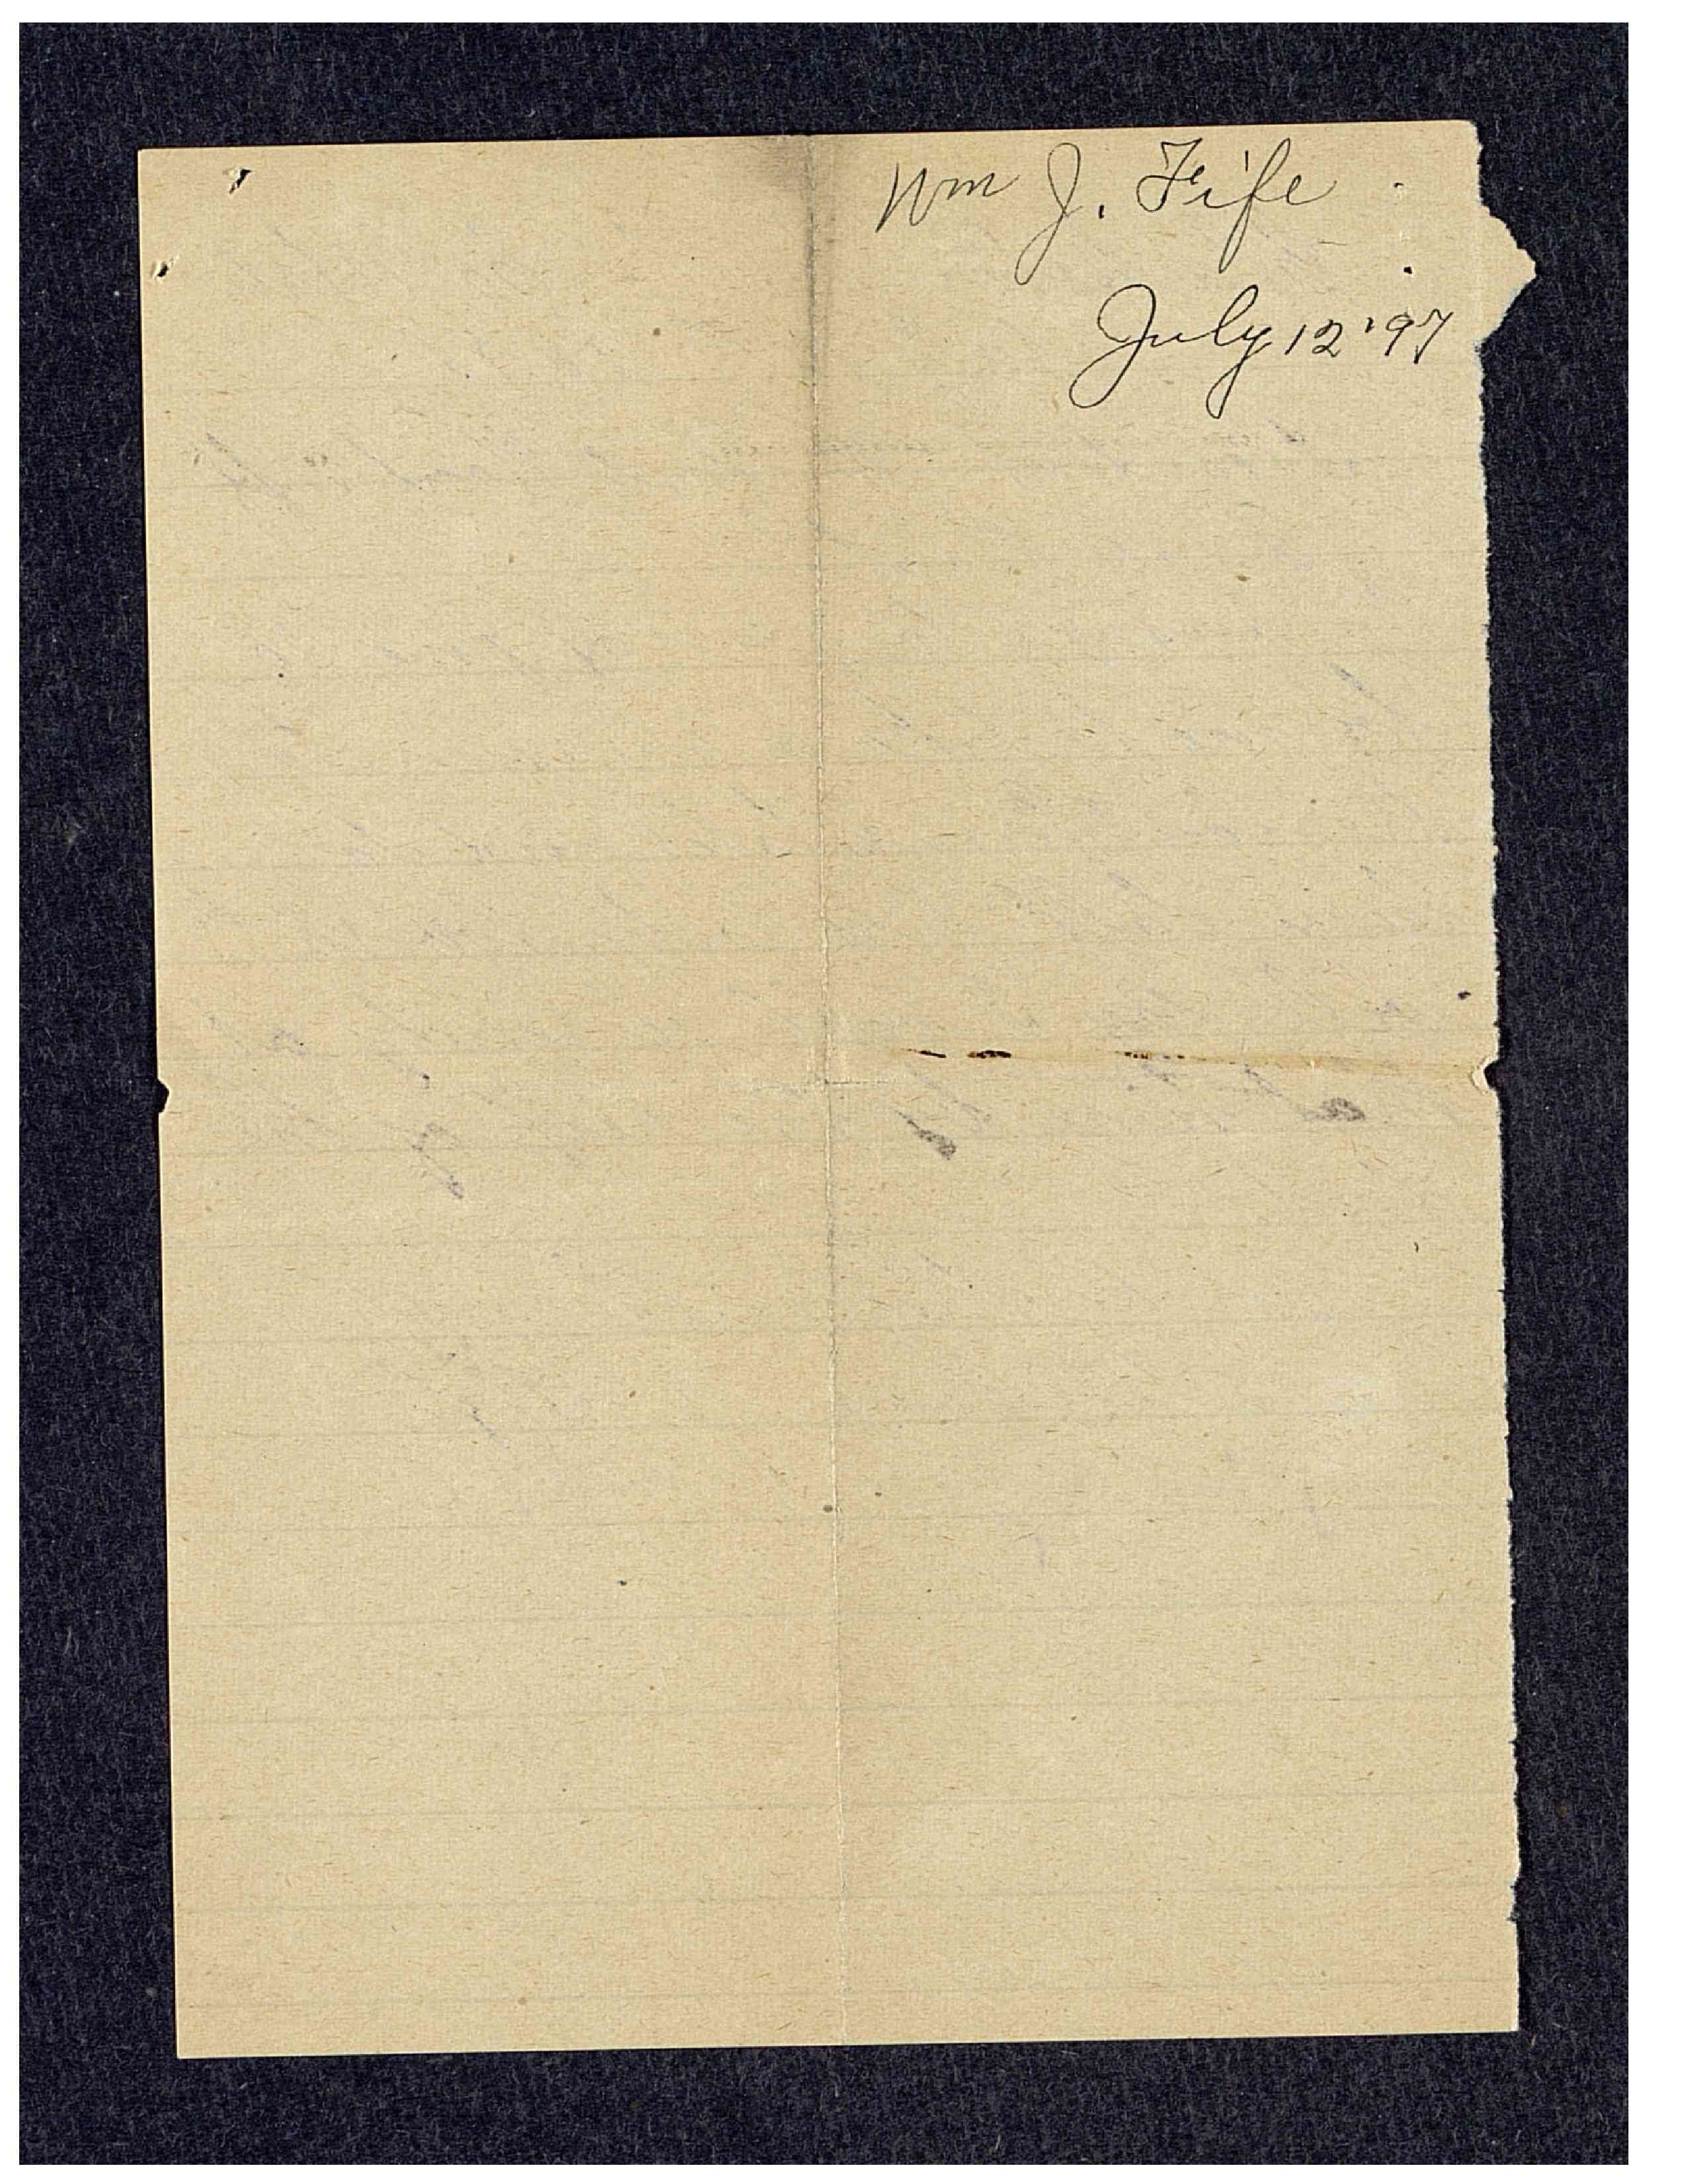 Wm J. Fife
July 12 '97